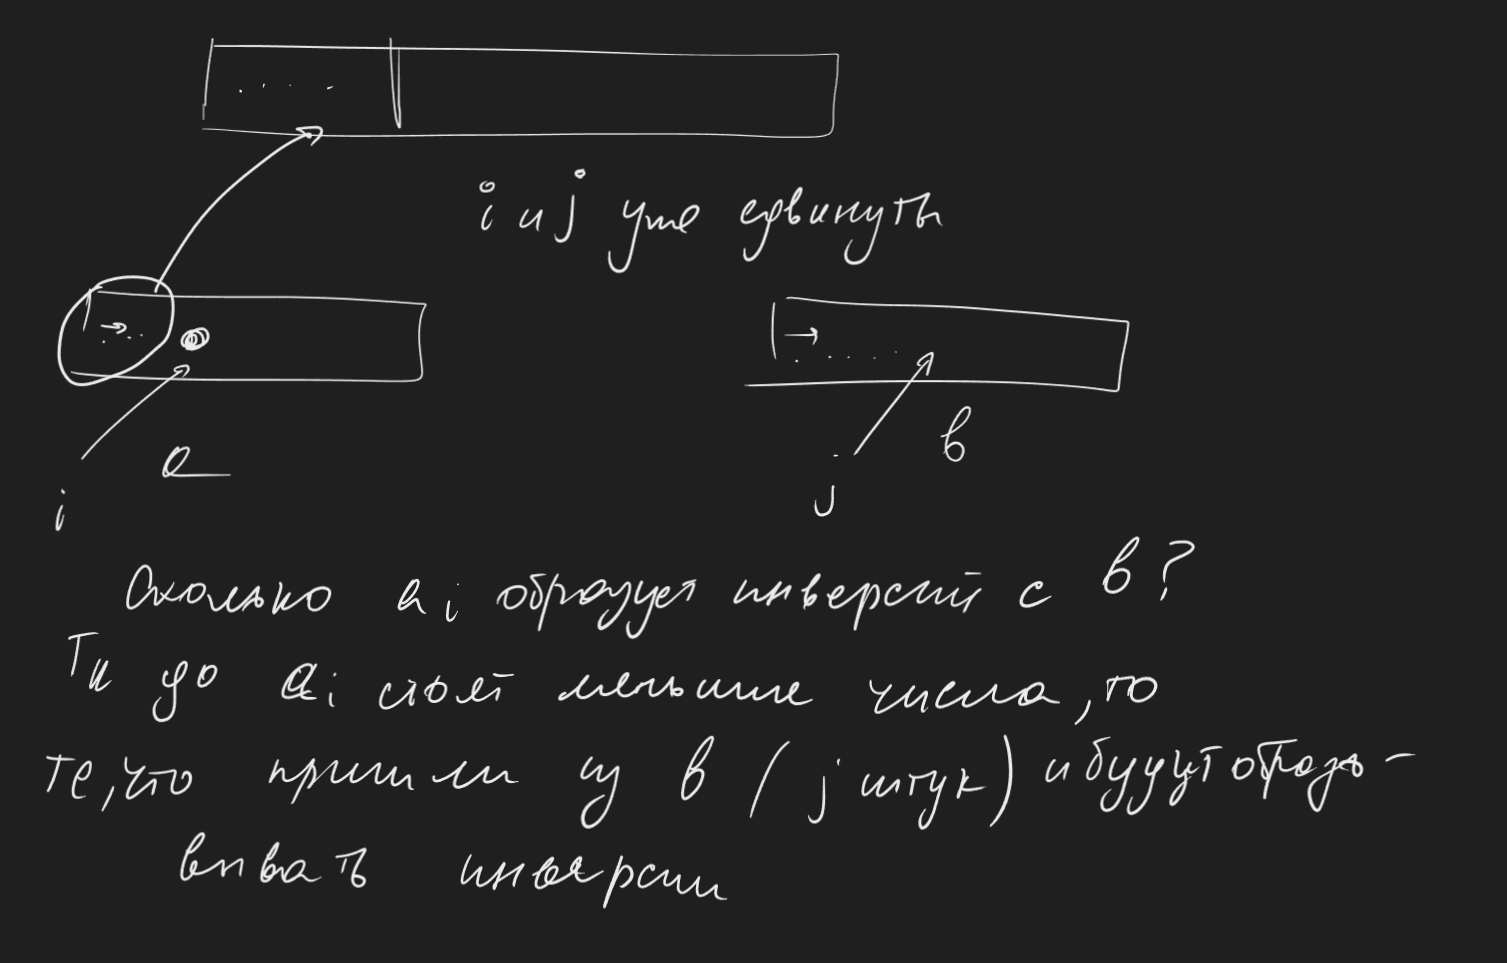 i и j уже сдвинуты
i
a
j
b
Сколько a i образует инверсий с b?
Тк до a i стоят меньшие числа, то
те, что пришли из b ( j штук) и будут образо-
вывать инверсии